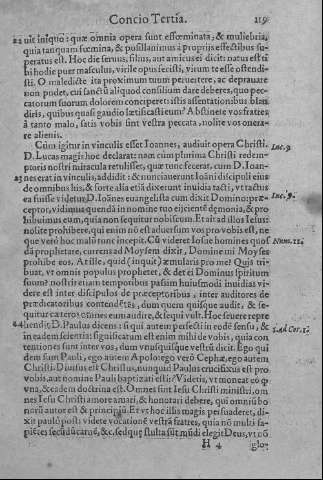 Concio Tertia. 119
uit iniquo: quæ omnia opera sunt efforminata, & muliebria,
quia tanquam fœmina, & pusillanimus à proprijs effectibus su-
peratus est. Hoc die seruus, filius, aut amicus ei dicit: natus est ti
bi hodie puer masculus, virile opus fecisti, virum te esse ostendi-
sti. O maledicte ita proximum tuum peruertere, ac deprauare
non pudet, cui sanctū aliquod consilium dare deberes, quo pec-
catorum suorum dolorem conciperet: istis assentationibus blan
diris, quibus quasi gaudio lætificasti eum? Abstinete vos fratres
à tanto malo, satis vobis sint vestra peccata, nolite vos onera-
re alienis.
Cùm igitur in vinculis esset Joannes, audiuit opera Christi.
D. Lucas magis hoc declarat: nam cùm plurima Christi redem-
ptoris nostri miracula retulisset, quæ tunc fecerat, cùm D. Ioan-
nes erat in vinculis, addidit: & nunciauerunt Ioāni discipuli eius
de omnibus his, & forte alia etiā dixerunt inuidia tacti, vt tactus
ea fuisse videtur D. Ioānes euangelista cum dixit Domino: præ-
ceptor, vidimus quendā in nomine tuo eijcientē dæmonia, & pro
hibuimus eum, quia non sequitur nobiscum. Et ait ad illos Iesus:
nolite prohibere, qui enim nō est aduersum vos pro vobis est, ne
que verò hoc malū tunc incepit. Cū videret Iosue homines quos
dā prophetare, currens ad Moysem dixit, Domine mi Moyses
prohibe eos. At ille, quid (inquit) æmularis pro me? Quis tri-
buat, vt omnis populus prophetet, & det ei Dominus spiritum
suum? nostris etiam temporibus passim huiusmodi inuidias vi-
dere est inter discipulos de præceptoribus, inter auditores de
prædicatoribus contendētes, dum quem quisque audit, & se-
quitur cæteros omnes eum audire, & sequi vult. Hoc seuere repre
hendit D. Paulus dicens: si qui autem perfecti in eodē sensu, &
in eadem scientia: significatum est enim mihi de vobis, quia con
tentiones sunt inter vos, dum vnusquisque vestrū dicit. Ego qui
dem sum Pauli, ego autem Apolo: ego verò Cephæ, ego autem
Christi. Diuisus est Christus, nunquid Paulus crucifixus est pro
vobis, aut nomine Pauli baptizati estis? Videtis, vt moneat eos
vna, & eadem doctrina est. Omnes sint Iesu Christi ministri, om
nes Iesu Christi amore amari, & honorari debere, qui omniū bo
norū autor est & principiū. Et vt hoc illis magis persuaderet, di-
xit paulò post: videte vocationē vestrā fratres, quia nō multi sa-
piētes secūdū carnē, &c. sed quę stulta sūt mūdi elegit Deus, vt nō
H 4 glo-
Luc. 9.
Luc. 9.
Num. 11.
1. Ad Cor. 1.